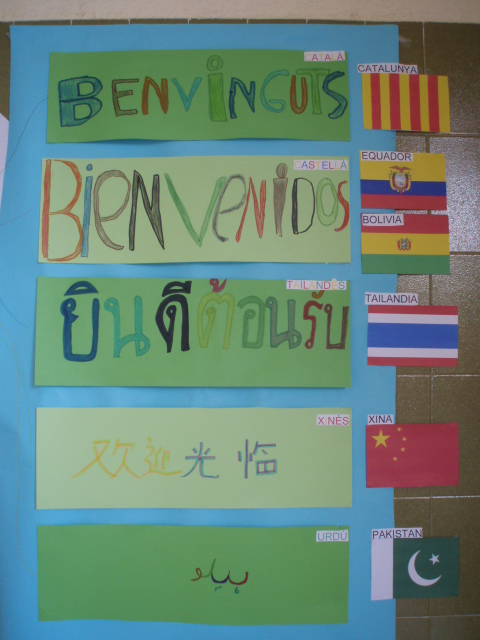 CATALÀ
BENVINGUTS
CATALUNYA
CASTELLÀ
BIENVENIDOS
EQUADOR
BOLIVIA
TAILANDÈS
ยินดีต้อนรับ
TAILANDIA
XINÈS
欢迎光临
XINA
URDÚ
PAKISTAN